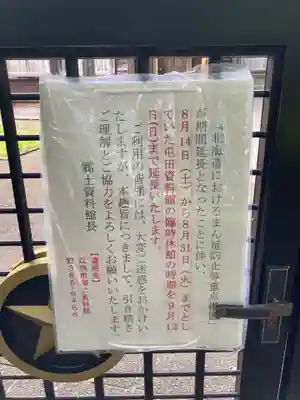 「北海道におけるまん延防止等重点措置」
が期間延長となったことに伴い、
8月14日（土）から8月31日（火）までとし
ていた屯田資料館の臨時休館の期間を9月12
日（日）まで延長いたします。
ご利用の皆様には、大変ご迷惑をおかけい
たしますが、本趣旨につきまして、引き続き
ご理解とご協力をよろしくお願いいたします。
郷土資料館長
【連絡先】